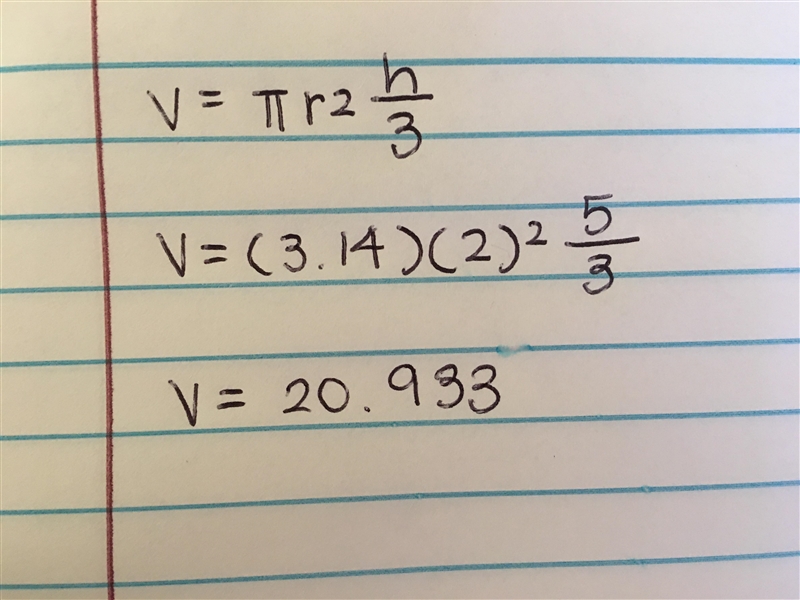 V = πr2 h/3
V = (3.14)(2)² 5/3
V = 20.933